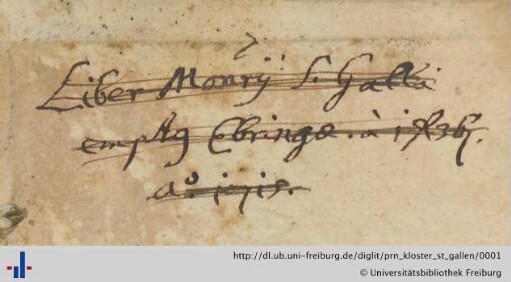 Liber Monrij S. Galli
emptq Ebringæ. à
aº. 1715.
http://dl.ub.uni-freiburg.de/diglit/prn_kloster_st_gallen/0001
© Universitätsbibliothek Freiburg